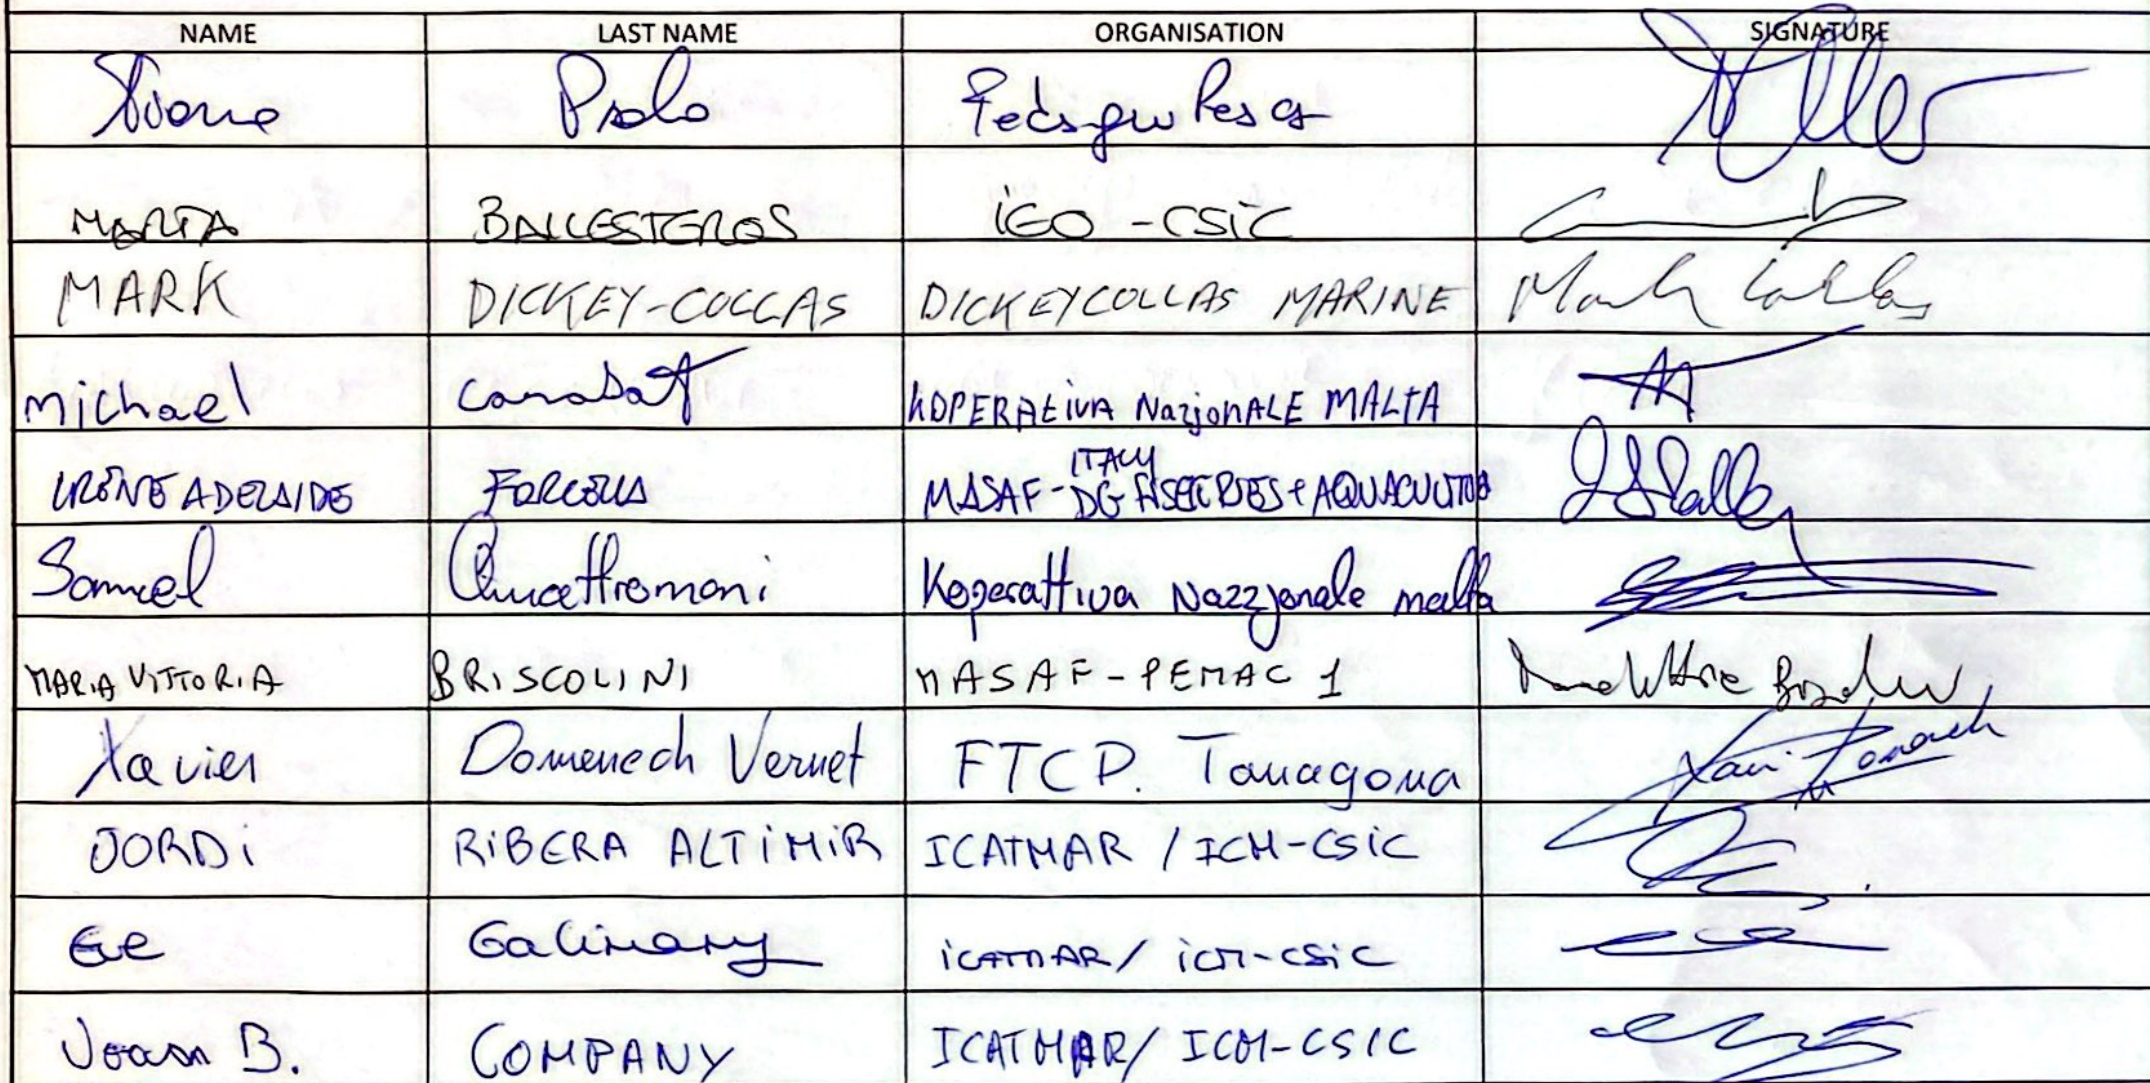 NAME LAST NAME ORGANISATION SIGNATURE
Paolo FedagriPesca
MARTA BALLESTEROS iEO - CSiC
MARK DICKEY-COLLAS DICKEYCOLLAS MARINE
Michael KOPERAtivA NazjonALE MALTA
ITALY
IRENE ADELAIDE FORCELLA MASAF - DG FISHERIES + AQUACULTURE
Samuel Quattromani Koperattiva Nazzjonale malta
MARIA VITTORIA BRISCOLINI MASAF - PEMAC 1
Xavier Domenech Vernet FTCP. Tarragona
JORDi RiBERA ALTiMiR ICATMAR / ICM-CSiC
Eve Galimany iCATMAR / iCM-CSiC
Joan B. COMPANY ICATMAR / ICM-CSIC